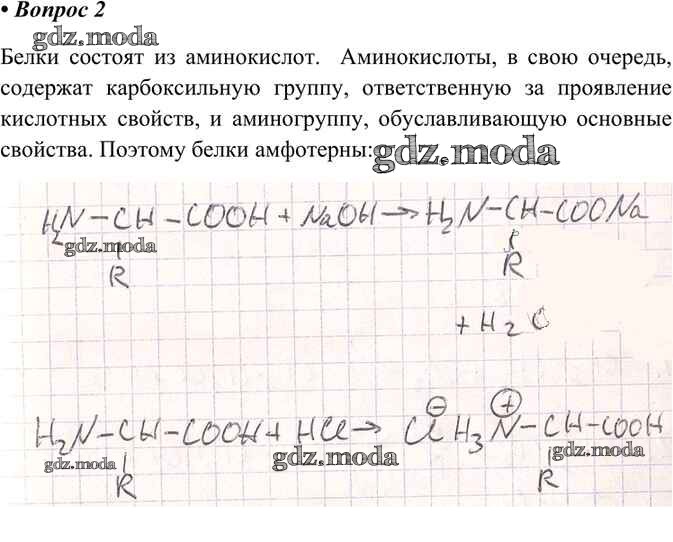 • Вопрос 2
gdz.moda
Белки состоят из аминокислот. Аминокислоты, в свою очередь,
содержат карбоксильную группу, ответственную за проявление
кислотных свойств, и аминогруппу, обуславливающую основные
свойства. Поэтому белки амфотерны:
gdz.moda
H₂N–CH–COOH + NaOH → H₂N–CH–COONa
gdz.moda
R R
+ H₂O
H₂N–CH–COOH + HCl → Cl⊖ H₃N⊕–CH–COOH
gdz.moda gdz.moda gdz.moda
R R